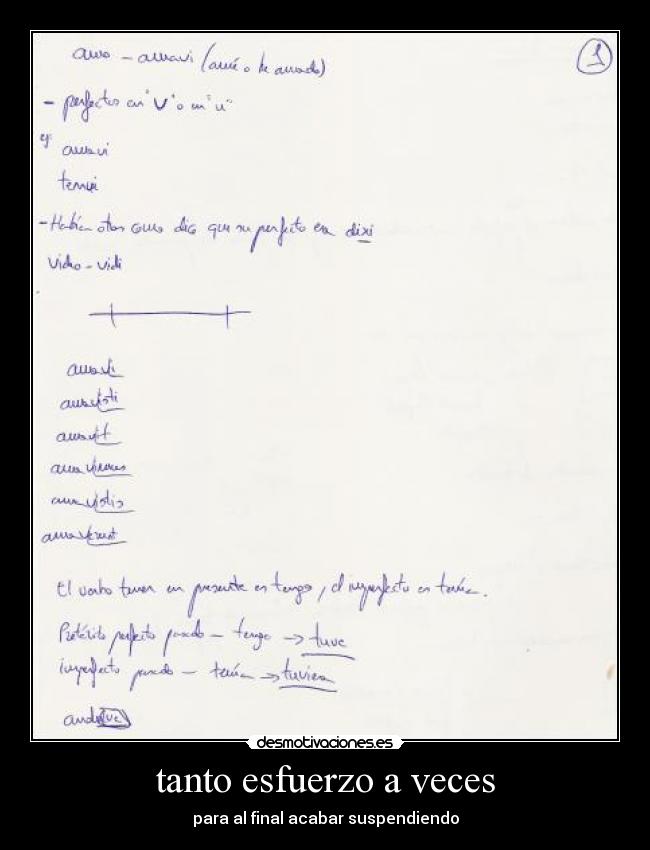 amo - amavi (amé o he amado)
1
- perfectos en "v" o en "u"
ej: amavi
temui
- Habían otros como dico que su perfecto era dixi
video - vidi
amavi
amavisti
amavit
amavimus
amavistis
amaverunt
El verbo tener en presente es tengo, el imperfecto es tenía.
Pretérito perfecto pasado - tengo → tuve
imperfecto pasado - tenía → tuviera
anduve
desmotivaciones.es
tanto esfuerzo a veces
para al final acabar suspendiendo